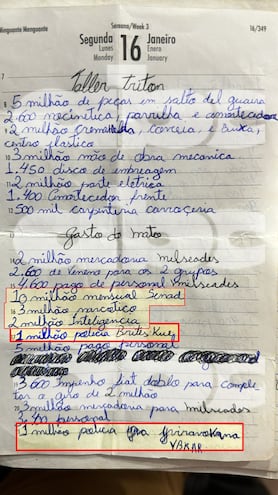 Minguante Menguante
Semana/Week 3
16/349
Segunda
Lunes
Monday
16
Janeiro
Enero
January
7
Taller triton
8 5 milhão de peças em salto del guaira
9 2.600 necintica, parrilha e amortecedor
2 milhão cremalhe
centro plastica
10 3 milhão mão de obra mecanica
1.450 disco de embreagem
11 2 milhão parte eletrica
1.400 amortecedor frente
12 500 mil carpintuia carroçeria
13
Gasto do mato
14 2 milhão mercadoria milseades
2.600 de veneno para os 2 grupos
15 4.600 pago de personal milseades
10 milhão mensual Senad
16 3 milhão narcotico
2 milhão Inteligencia
1 milhão policia Brites Kue
3 milhão pago personal
3 600 Impenho fiat doblo para comple
tar a giro de 2 milhão
3 milhão mercadoria para milseades
personal
1 milhão policia
YBKAR